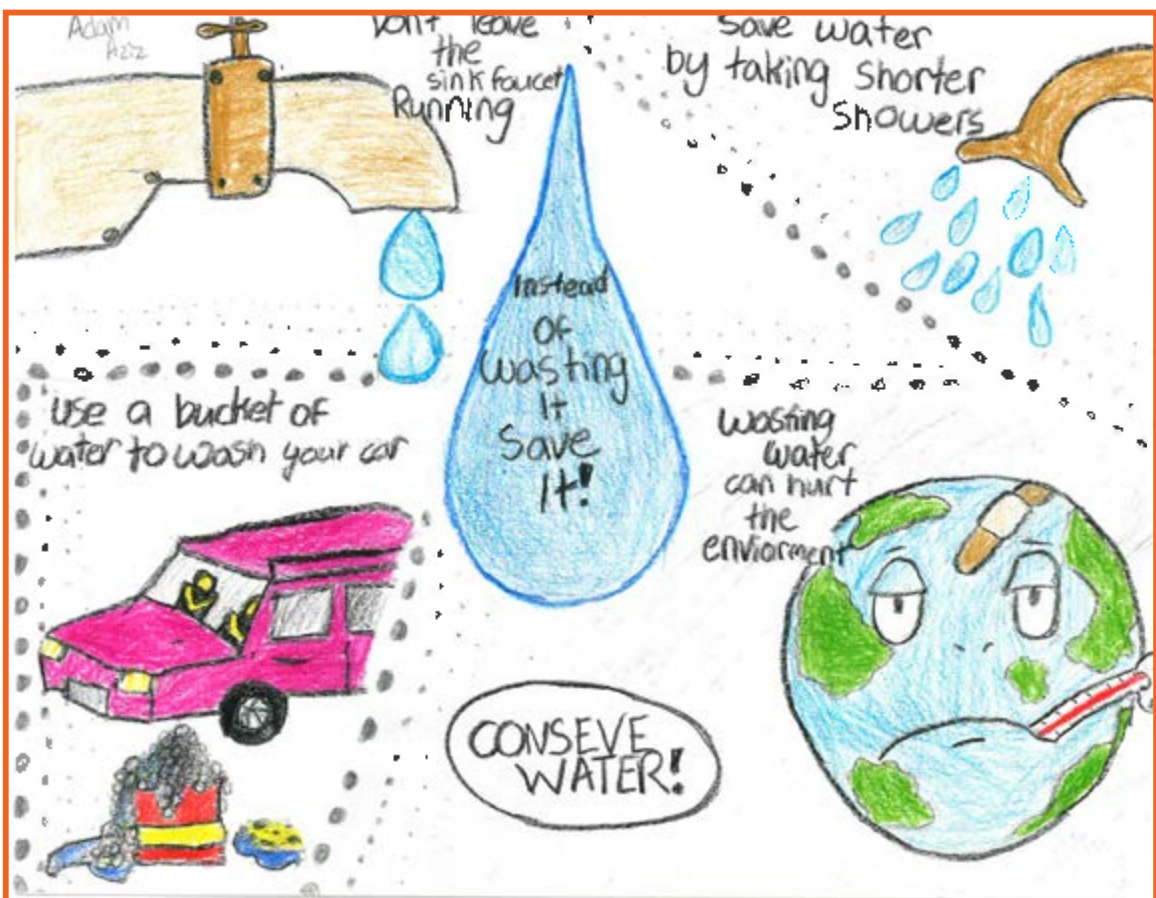 Adam
Aziz
Don't leave
the
sink faucet
Running
Save water
by taking shorter
Showers
Instead
Of
Wasting
It
Save
It!
Use a bucket of
water to wash your car
Wasting
water
can hurt
the
enviorment
CONSEVE
WATER!